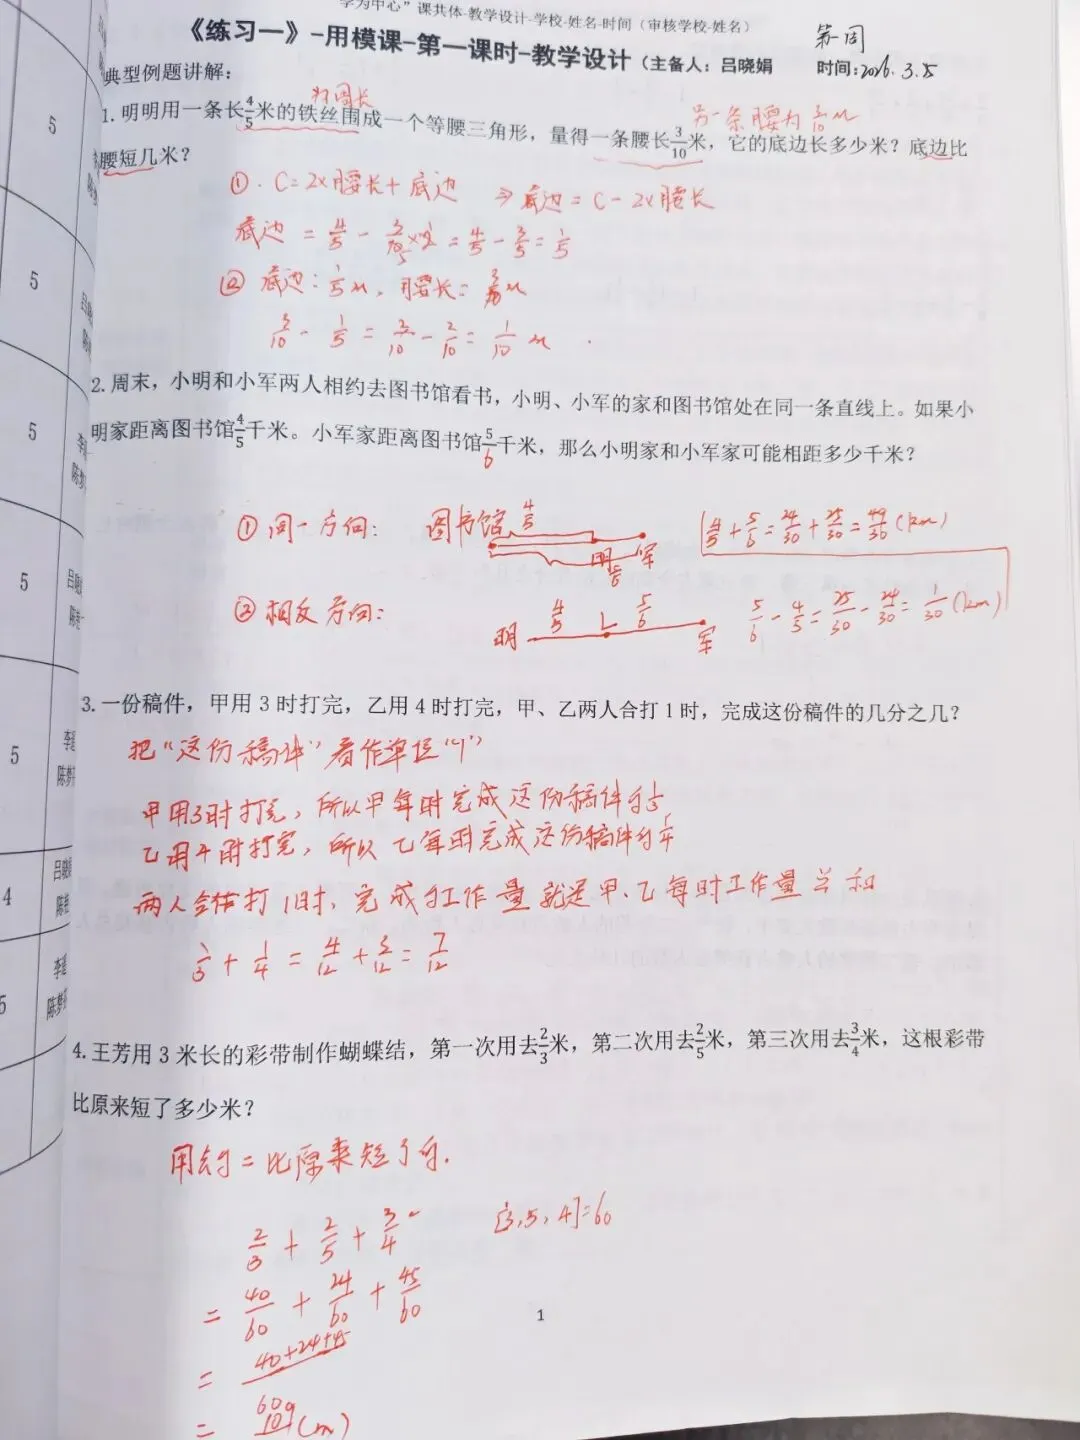 学为中心”课共体-教学设计-学校-姓名-时间（审核学校-姓名）
《练习一》-用模课-第一课时-教学设计（主备人：吕晓娟 时间：2026.3.5
第一周
典型例题讲解：
1.明明用一条长4/5米的铁丝围成一个等腰三角形，量得一条腰长3/10米，它的底边长多少米？底边比
另一条腰为3/10m
腰短几米？
①.C=2×腰长+底边 ⇒底边=C-2×腰长
底边=4/5-3/10×2=4/5-3/5=1/5
②底边：1/5m，腰长：3/10m
3/10-1/5=3/10-2/10=1/10m
2.周末，小明和小军两人相约去图书馆看书，小明、小军的家和图书馆处在同一条直线上。如果小
明家距离图书馆4/5千米。小军家距离图书馆5/6千米，那么小明家和小军家可能相距多少千米？
①同一方向： 图书馆 4/5 明 军 5/6
4/5+5/6=24/30+25/30=49/30(km)
②相反方向： 明 4/5 5/6 军
5/6-4/5=25/30-24/30=1/30(km)
3.一份稿件，甲用3时打完，乙用4时打完，甲、乙两人合打1时，完成这份稿件的几分之几？
把“这份稿件”看作单位“1”
甲用3时打完，所以甲每时完成这份稿件的1/3
乙用4时打完，所以乙每时完成这份稿件的1/4
两人合作打1时，完成的工作量就是甲、乙每时工作量之和
1/3+1/4=4/12+3/12=7/12
4.王芳用3米长的彩带制作蝴蝶结，第一次用去2/3米，第二次用去2/5米，第三次用去3/4米，这根彩带
比原来短了多少米？
用去的=比原来短了的.
2/3+2/5+3/4 [3,5,4]=60
=40/60+24/60+45/60
=40+24+45/60
=109(m)
1
5
5
5
5
5
4
5